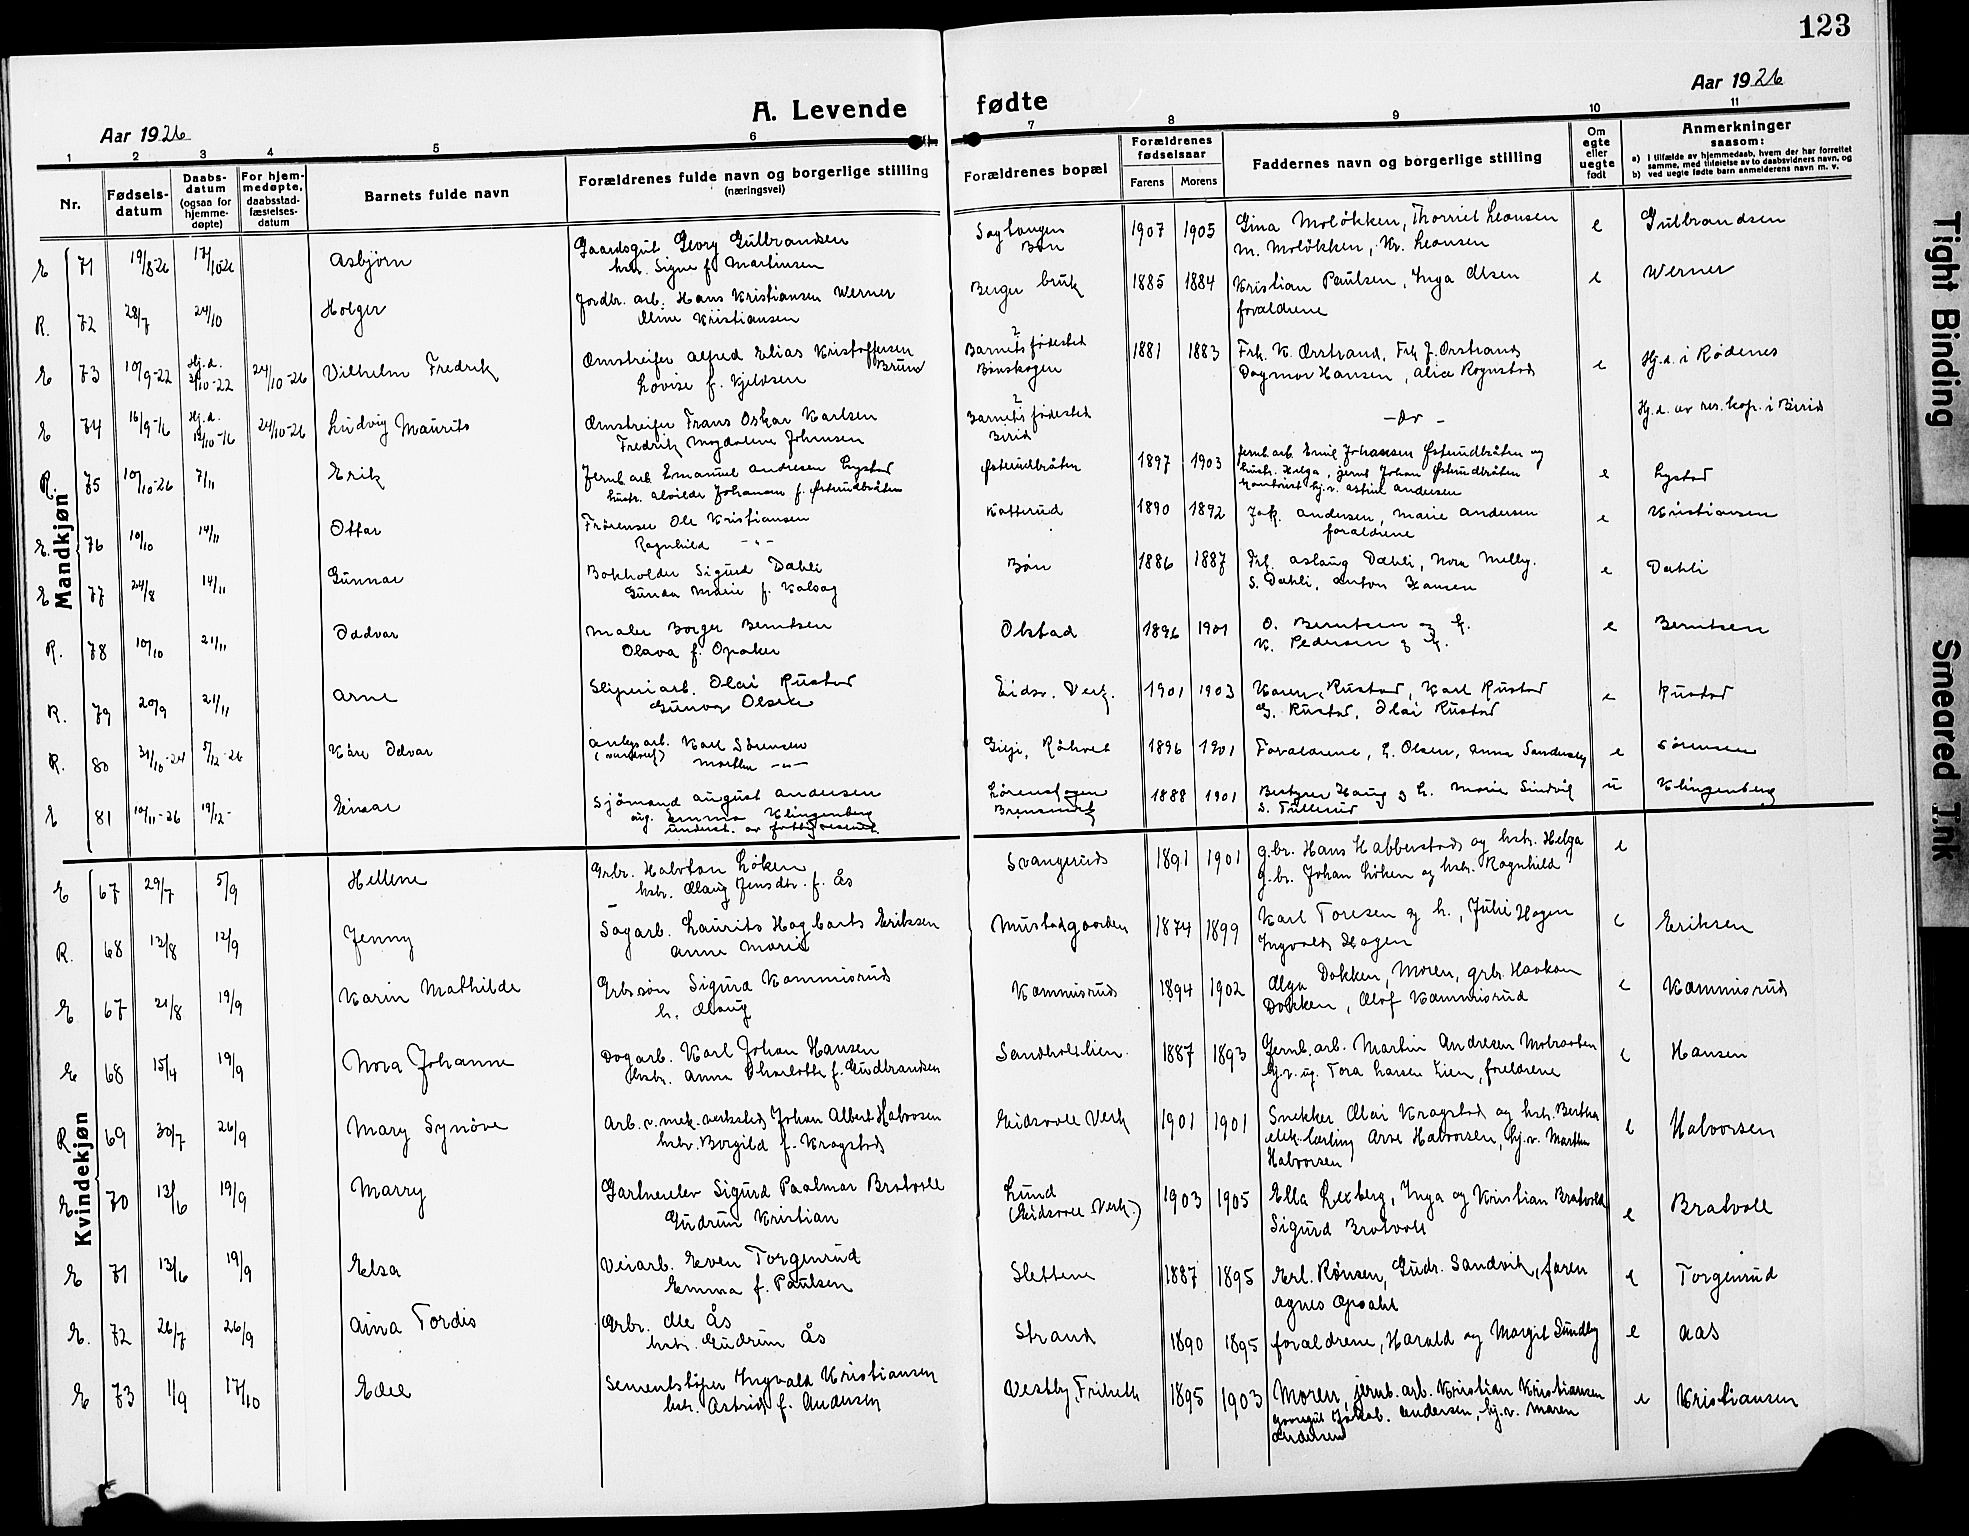 123
Aar 1926
A. Levende fødte
Aar 1926
1 2 3 4 5 6 7 8 9 10 11
Nr.
Fødsels-
datum
Daabs-
datum
(ogsaa for
hjemme-
døpte)
For hjem-
medøpte,
daabsstad-
fæstelses-
datum
Barnets fulde navn
Forældrenes fulde navn og borgerlige stilling
(næringsvei)
Forældrenes bopæl
Forældrenes
fødselsaar
Farens Morens
Faddernes navn og borgerlige stilling
Om
egte
eller
uegte
født
Anmerkninger
saasom:
a) I tilfælde av hjemmedaab, hvem der har forrettet
samme, med tilføielse av to daabsvidners navn, og
b) ved uegte fødte barn anmelderens navn m. v.
Mandkjøn
E 71 19/8-26 17/10-26 Asbjørn
Gaardsgut Georg Gulbrandsen
hstr. Signe f. Martinsen
1907 1905
Gina Moløkken, Leonsen
M. Moløkken, Kr. Leonsen
e Gulbrandsen
R. 72 28/7 24/10 Holger
Jordbr. arb. Hans Kristiansen Werner
Oline Kristiansen
Berger bruk 1885 1884
Kristian Paulsen, Inga Olsen
forældrene
e Werner
E 73 10/9-22 Hj.d. 3/10-22 24/10-26 Vilhelm Fredrik
Omstreifer Alfred Elias Kristoffersen
Brun
Lovise f. Kjeldsen
Barnets fødested
Bønskogen
1881 1883
Frk. K. Ørstrand, Frk. J. Ørstrand
Dagmar Hansen, Alice Rognstad
e Hj.d. i Rødenes
E 74 16/9-16 Hj.d. 24/10-26 Ludvig Maurits
Omstreifer Frans Oskar Karlsen
Fredrik Magdalene Johnsen
Barnets fødested
Birid
- do -
Hj.d. av res. kap. i Birid
R. 75 10/10-26 7/11 Erik
Jernb arb Emanuel Andresen Lystad
hustr. Alvilde Johansen f. Østrudbråten
Østrudbråten 1897 1903
Jernb arb Emil Johansen Østrudbråten og
hustr. Helga, jernb Johan Østrudbråten
hj.v. Astrid Andersen
e Lystad
E. 76 10/10 14/11 Ottar
Ole Kristiansen
Ragnhild - " -
Katterud 1890 1892
Jak. Andersen, Marie Andersen
forældrene
e Kristiansen
E 77 24/8 14/11 Gunnar
Bokholder Sigurd Dæhli
Gunda Marie f. Kalsag
Bøn 1886 1887
Frk. Aslaug Dæhli, Nora Melby.
S. Dæhli, Anton Hansen
e Dæhli
R. 78 10/10 21/11 Oddvar
Maler Borger Berntsen
Olava f. Opaker
Olstad 1896 1901
O. Berntsen og h.
K. Pedersen og h.
e Berntsen
R. 79 20/9 21/11 Arne
Sliperiarb. Olai Rustad
Gunvor Olsen
Eidsv. Verk. 1901 1903
Karen Rustad, Karl Rustad
G. Rustad, Olai Rustad
e Rustad
R. 80 31/10-24 5/12-26 Kåre Odvar
Anlegsarb. Karl Sørensen
Marthe - " -
Råholt 1896 1901
Forældrene, E. Olsen, Anna Sandersby
e Sørensen
E 81 10/11-26 19/12- Einar
Sjømand August Andersen
ug. Emma Klingenberg
underst. av fattigvesenet
1888 1901
Bestyrer Haug og h. Marie Sundvik
S. Tullerud
u Klingenberg
Kvindekjøn
E 67 29/7 5/9 Hellene
Grbr. Halvdan Løken
hstr. Olaug Jensdtr. f. Ås
Svangerud 1891 1901
g.br. Hans Habberstad og hstr. Helga
g.br. Johan Løken og hstr. Ragnhild
e
R. 68 12/8 12/9 Jenny
Sagarb. Laurits Hagbarts Eriksen
Anne Marie
Mustadgaarden 1874 1899
Karl Toresen og h., Julie Hagen
Ingvald Hagen
e Eriksen
E 67 21/8 19/9 Karin Mathilde
Grbrsøn Sigurd Kammisrud
h. Olaug
Kammisrud 1894 1902
Olga Dokken, Moren, grbr. Haakon
Dokken, Olof Kammisrud
e Kammisrud
E 68 15/4 19/9 Nora Johanne
Dagarb. Karl Johan Hansen
hstr. Anna Charlotte f. Gudbrandsen
Sandholtlien. 1887 1893
Jernb. arb. Martin Andresen
hj.v. ug. Tora Larsen Lien, foreldrene
e Hansen
R 69 30/7 26/9 Mary Synøve
Arb. v. mek. verksted Johan Albert Halvorsen
hstr. Borgild f. Kragstad
Eidsvold Verk 1901 1901
Snekker Olai Kragstad og hstr. Bertha
elek. lærling Arve Halvorsen, hj.v. Marthe
Halvorsen
e Halvorsen
E 70 13/6 19/9 Marry
Gartnerelev Sigurd Paalmar Bratvold
Gudrun Kristian
Lund
(Eidsvold Verk.)
1903 1905
Ella Lexberg, Inga og Kristian Bratvold
Sigurd Bratvold
e Bratvold
E 71 13/6 19/9 Elsa
Veiarb. Even Torgenrud
Emma f. Paulsen
Slettene 1887 1895
Erl. Rønsen, Gudr. Sandvik, faren
Agnes Opsahl
e Torgenrud
E. 72 26/7 26/9 Aina Tordis
Grbr. Ole Ås
hstr. Gudrun Ås
Strand 1890 1895
foraldrene, Harald og Margit Sundby
e Aas
E 73 1/9 17/10 Edel
Sementstøper Ingvald Kristiansen
hstr. Astrid f. Andersen
Vestby, Friheth 1895 1903
Moren, jernb. arb. Kristian Kristiansen
Jakob. Andersen, hj.v. Maren
Andersen
e Kristiansen
Tight Binding
Smeared Ink